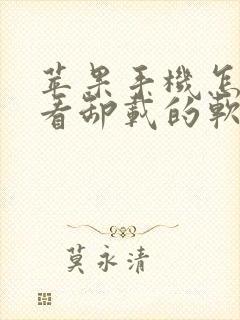 苹果手機怎
看卸載的軟
莫永清